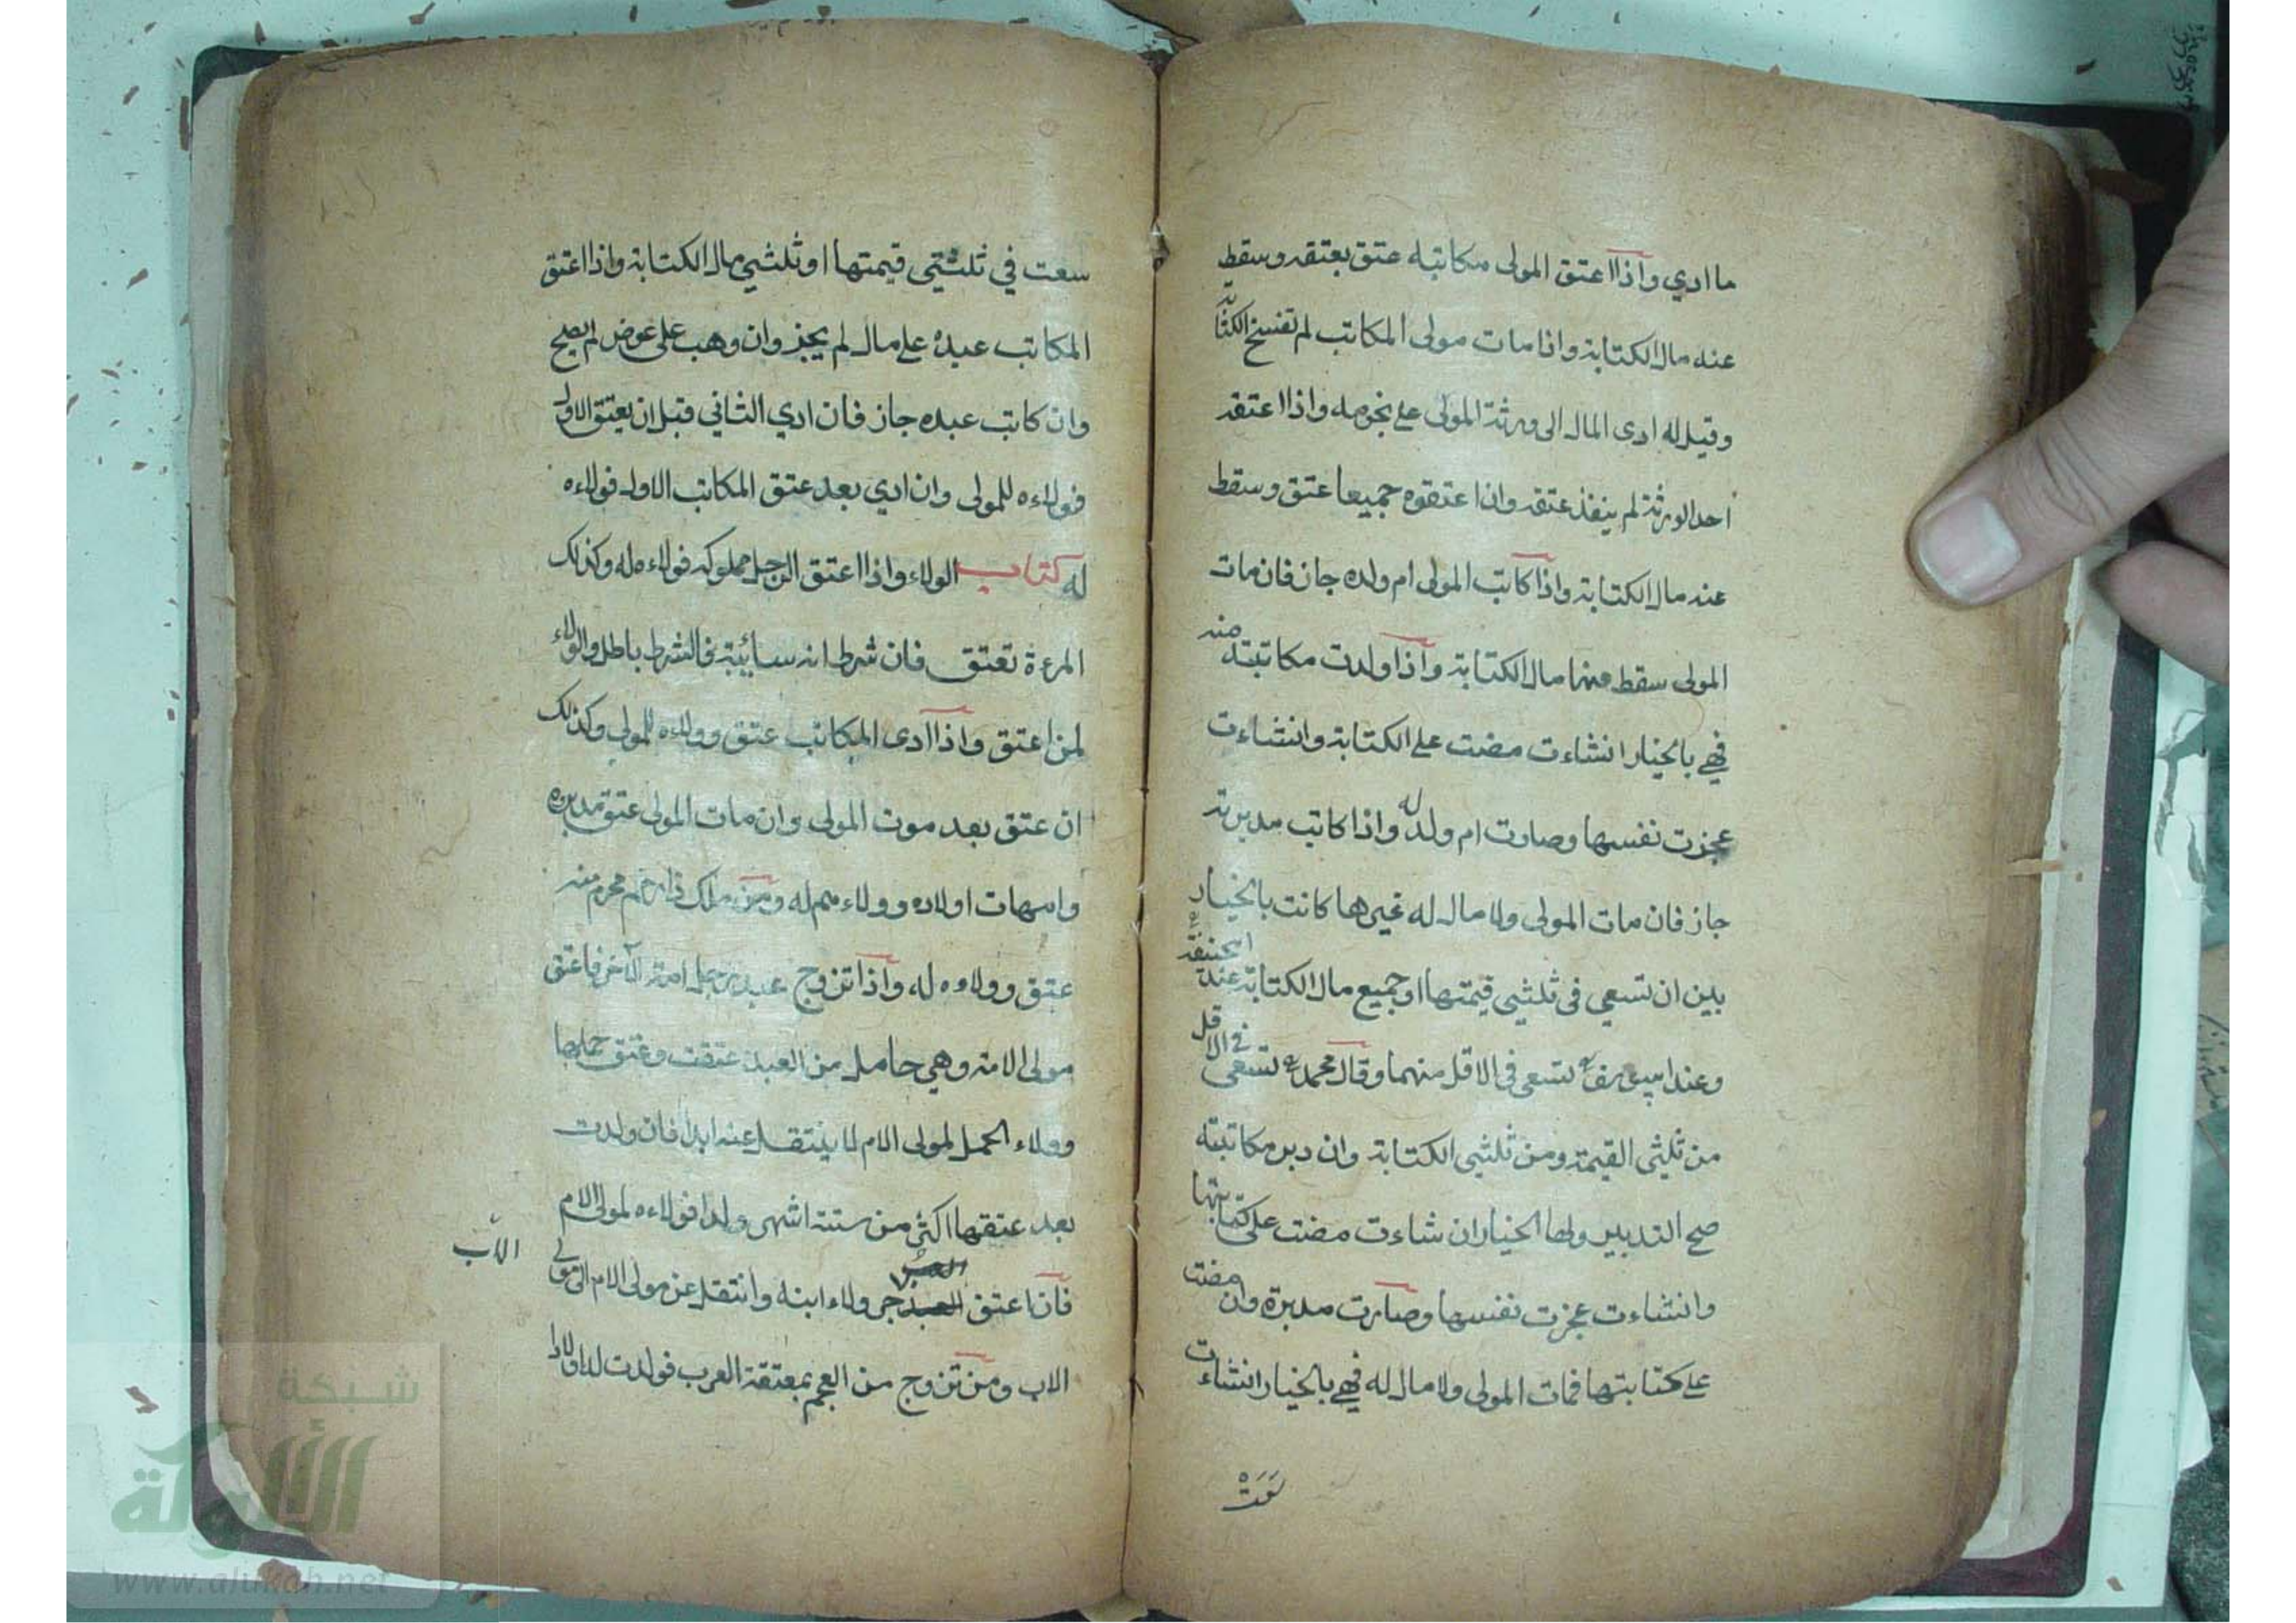 ما ادي واذا اعتق المولى مكاتبه عتق بعتقه وسقط
عنه مال الكتابة واذا مات مولى المكاتب لم تفسخ الكتابة
وقيل له ادى المال الى ورثة المولى على نجومه واذا اعتقه
احد الورثة لم ينفذ عتقه وان اعتقوه جميعا عتق وسقط
عنه مال الكتابة واذا كاتب المولى ام ولده جاز فان مات
المولى سقط عنها مال الكتابة واذا ولدت مكاتبته منه
فهي بالخيار انشاءت مضت على الكتابة وانشاءت
عجزت نفسها وصارت ام ولد له واذا كاتب مدبرته
جاز فان مات المولى ولا مال له غيرها كانت بالخيار
بين ان تسعي في ثلثي قيمتها او جميع مال الكتابة عند ابحنيفة
وعند ابيوسف تسعى في الاقل منهما وقال محمد تسعى في الاقل
من ثلثي القيمة ومن ثلثي الكتابة وان دبر مكاتبته
صح التدبير ولها الخيار ان شاءت مضت على كتابتها
وانشاءت عجزت نفسها وصارت مدبرة وان مضت
على كتابتها فمات المولى ولا مال له فهي بالخيار انشاءت
سعت
سعت في ثلثي قيمتها او ثلثي مال الكتابة واذا اعتق
المكاتب عبده على مال لم يجز وان وهب على عوض لم يصح
وان كاتب عبده جاز فان ادي الثاني قبل ان يعتق الاول
فولاءه للمولى وان ادي بعد عتق المكاتب الاول فولاءه
له كتاب الولاء واذا اعتق الرجل مملوكه فولاءه له وكذلك
المرءة تعتق فان شرط انه سائبة فالشرط باطل والولاء
لمن اعتق واذا آدى المكاتب عتق وولاءه للمولى وكذلك
ان عتق بعد موت المولى وان مات المولى عتق مدبره
وامهات اولاده وولاءهم له ومن ملك ذا رحم محرم منه
عتق وولاءه له واذا تزوج عبد رجل امة الآخر فاعتق
مولى الامة وهي حامل من العبد عتقت وعتق حملها
وولاء الحمل لمولى الام لا ينتقل عنه ابدا فان ولدت
بعد عتقها اكثر من ستة اشهر ولدا فولاءه لمولى الام
فان اعتق العبد جر ولاء ابنه وانتقل عن مولى الام الى مولى
الاب
الاب ومن تزوج من العجم بمعتقة العرب فولدت له اولادا
شبكة
الألوكة
www.alukah.net